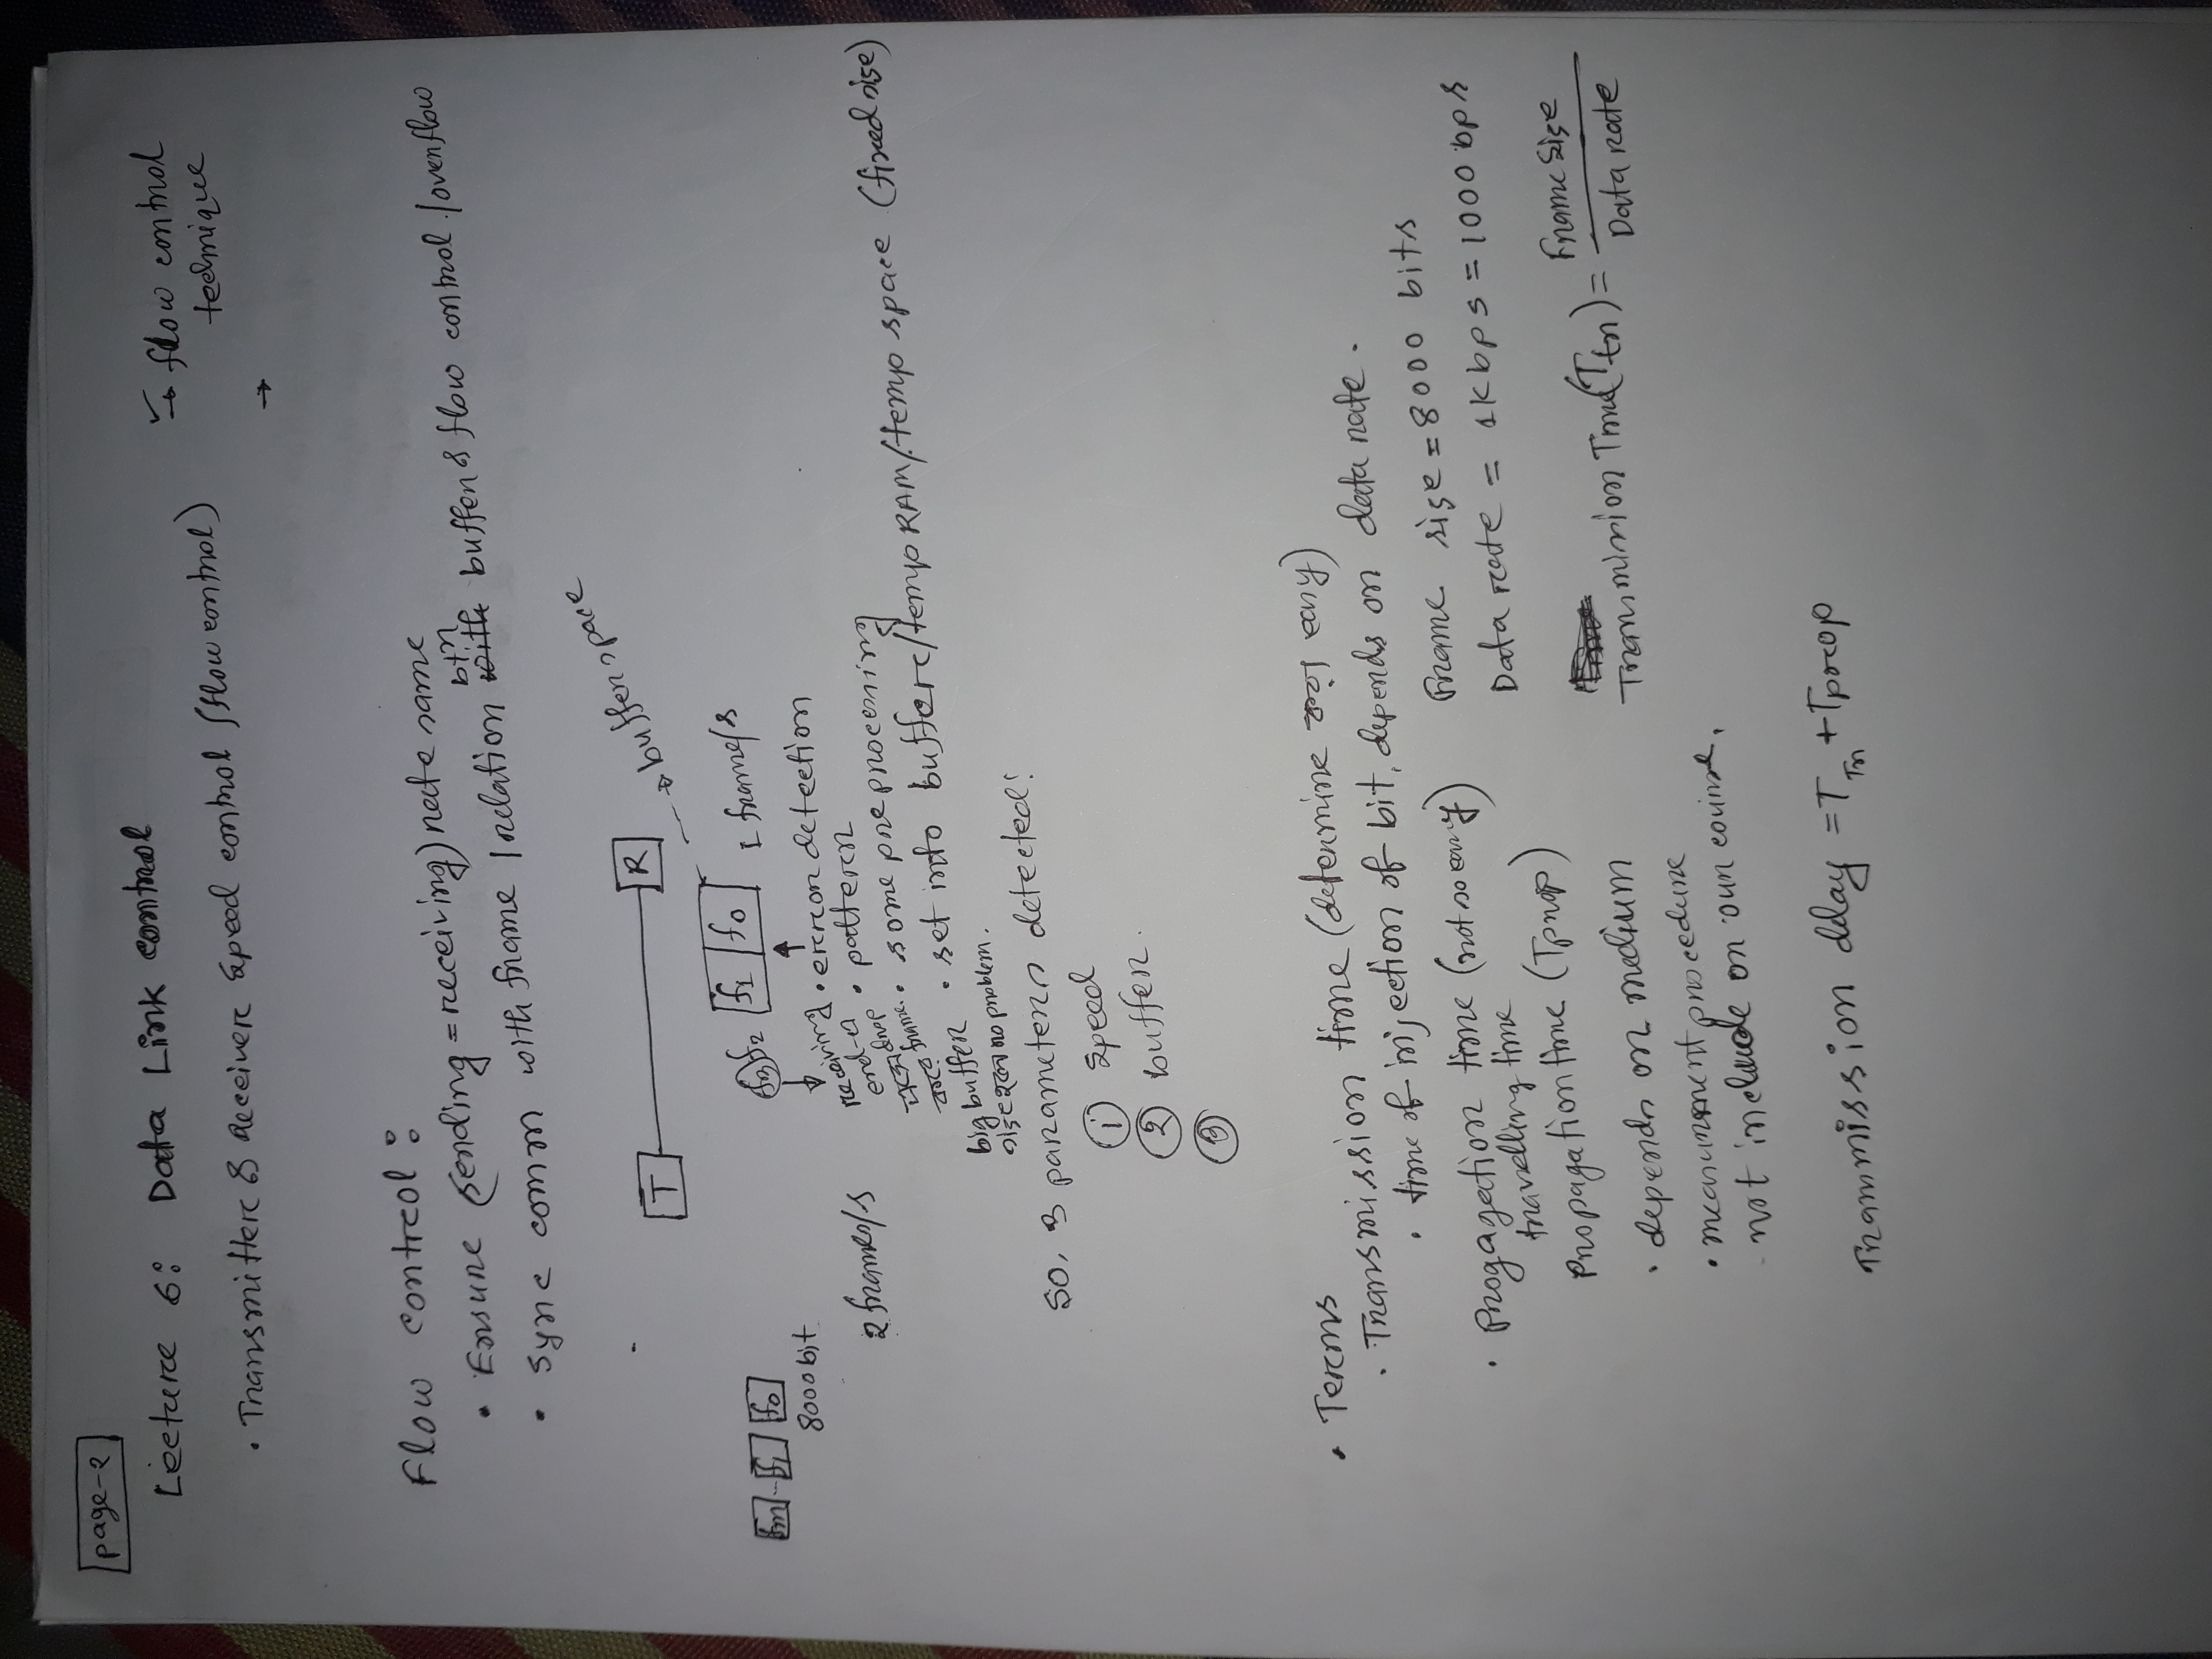 page-2
Lecture 6: Data Link control
→ flow control
technique
• Transmitter & Receiver speed control (flow control)
→
Flow control:
• Ensure (sending = receiving) rate same
btn
• Sync comm with frame / relation with buffer & flow control / overflow
T R
buffer space
fm .. f1 f0
f3 f2 f1 f0 1 frame/s
8000 bit
2 frames/s
receiving
end-এ
drop
করে frame.
• error detection
• pattern
• some preprocessing
• set into buffer/temp RAM/temp space (fixed size)
big buffer
size হলে no problem.
So, 3 parameters detected:
① speed
② buffer.
③
• Terms
• Transmission time (determine করা easy)
• time of injection of bit, depends on data rate.
• Progagation time (not so easy)
travelling time
Propagation time (Tprop)
• depends on medium
• measurment procedure
not include on our course.
Frame size = 8000 bits
Data rate = 1Kbps = 1000 bps
Transmission Time (Ttr) = Frame Size
Data rate
Transmission delay = TTr + Tprop